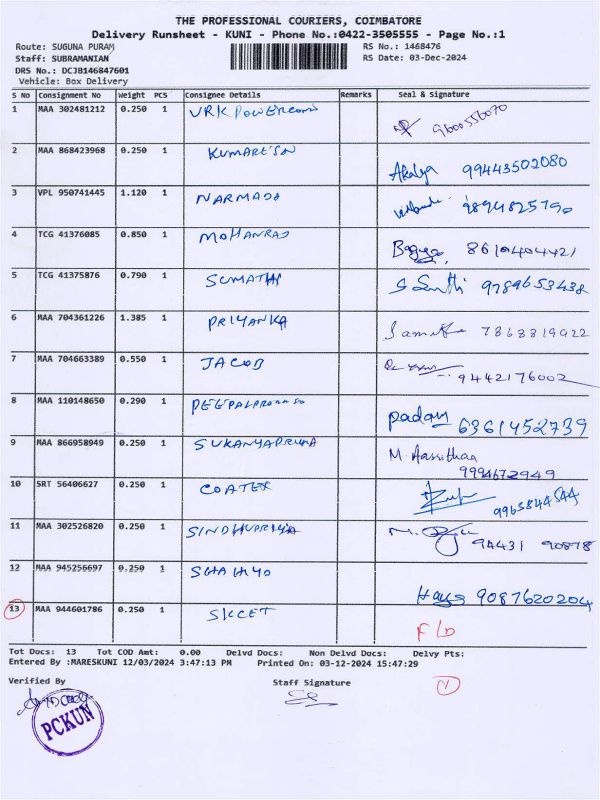 THE PROFESSIONAL COURIERS, COIMBATORE
Delivery Runsheet - KUNI - Phone No.:0422-3505555 - Page No.:1
Route: SUGUNA PURAM
RS No.: 1468476
Staff: SUBRAMANIAN
RS Date: 03-Dec-2024
DRS No.: DCJB146847601
Vehicle: Box Delivery
S No Consignment No Weight PCS Consignee Details Remarks Seal & Signature
1 MAA 302481212 0.250 1 VRK POWERCOM 9600556070
2 MAA 868423968 0.250 1 KUMARESN Akalya 99443502080
3 VPL 950741445 1.120 1 NARMADA 9894825790
4 TCG 41376085 0.850 1 MOHANRAJ 8610404421
5 TCG 41375876 0.790 1 SUMATHI S Santhi 9789653438
6 MAA 704361226 1.385 1 PRIYANKA 7863819922
7 MAA 704663389 0.550 1 JACOB 9442176002
8 MAA 110148650 0.290 1 padam 6361452739
9 MAA 866958949 0.250 1 SUKANYAPRIYA M. Aassithaa
9994672949
10 SRT 56406627 0.250 1 COATEX 9965844544
11 MAA 302526820 0.250 1 SINDHUPRIYA 94431 90878
12 MAA 945256697 0.250 1 Hays 9087620204
13 MAA 944601786 0.250 1 SKCET
F/D
Tot Docs: 13 Tot COD Amt: 0.00 Delvd Docs: Non Delvd Docs: Delvy Pts:
Entered By :MARESKUNI 12/03/2024 3:47:13 PM Printed On: 03-12-2024 15:47:29
Verified By Staff Signature
PCKUN